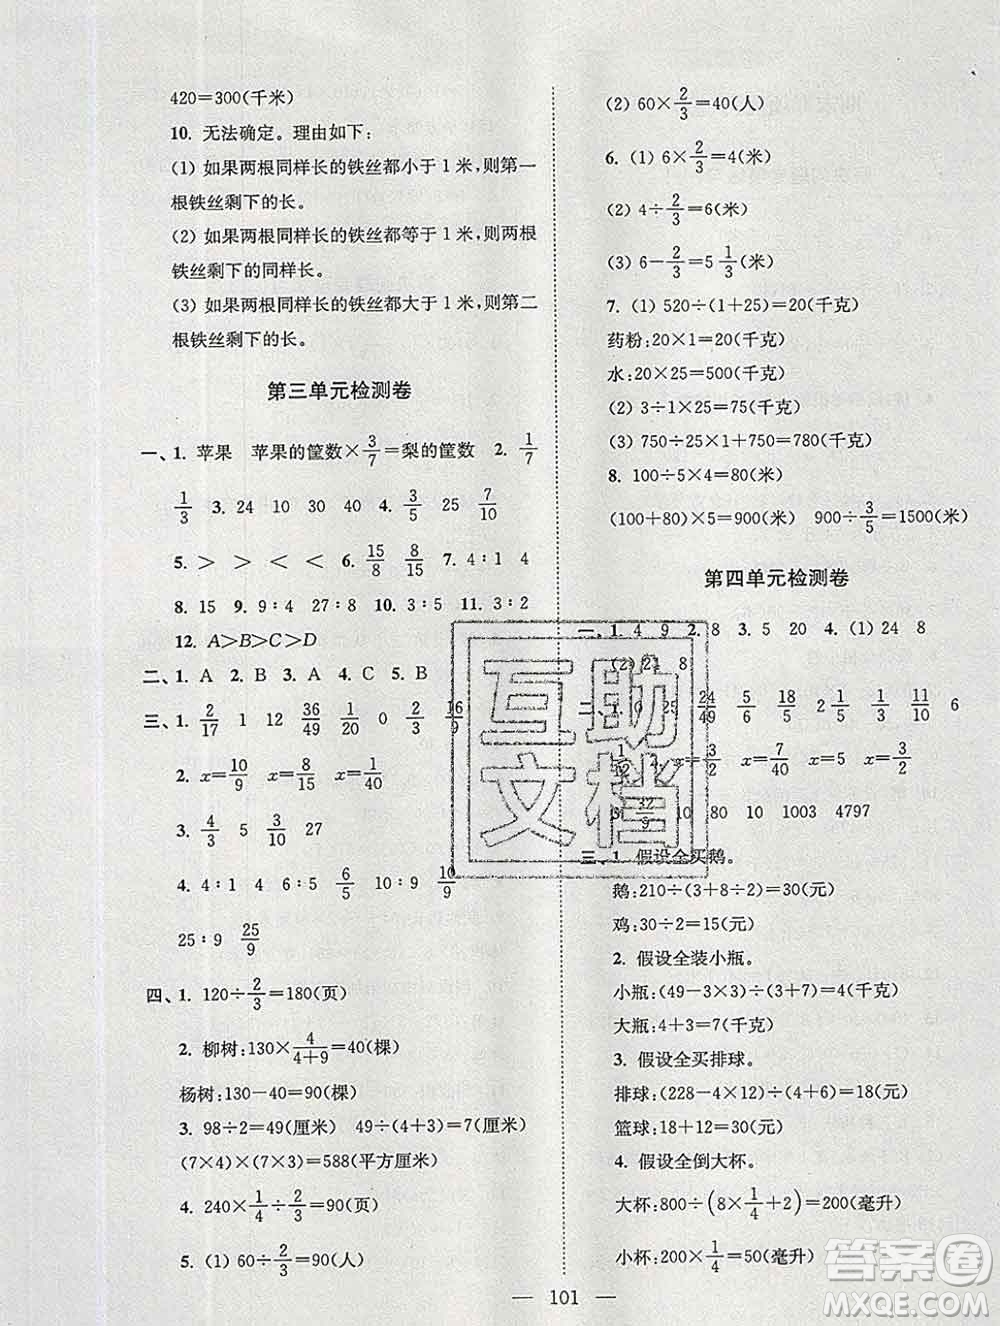 420=300(千米)
10. 无法确定。理由如下:
(1) 如果两根同样长的铁丝都小于 1 米,则第一
根铁丝剩下的长。
(2) 如果两根同样长的铁丝都等于 1 米,则两根
铁丝剩下的同样长。
(3) 如果两根同样长的铁丝都大于 1 米,则第二
根铁丝剩下的长。
第三单元检测卷
一、1. 苹果 苹果的筐数×3/7=梨的筐数 2. 1/7
1/3 3. 24 10 30 40 4. 3/5 25 7/10
5. > > < < 6. 15/8 8/15 7. 4∶1 4
8. 15 9. 9∶4 27∶8 10. 3∶5 11. 3∶2
12. A>B>C>D
二、1. A 2. B 3. A 4. C 5. B
三、1. 2/17 1 12 36/49 1/20 0 2/3 16/9
2. x=10/9 x=8/15 x=1/40
3. 4/3 5 3/10 27
4. 4∶1 4 6∶5 6/5 10∶9 10/9
25∶9 25/9
四、1. 120÷2/3=180(页)
2. 柳树:130×4/(4+9)=40(棵)
杨树:130-40=90(棵)
3. 98÷2=49(厘米) 49÷(4+3)=7(厘米)
(7×4)×(7×3)=588(平方厘米)
4. 240×1/4÷2/3=90(页)
5. (1) 60÷2/3=90(人)
(2) 60×2/3=40(人)
6. (1) 6×2/3=4(米)
(2) 4÷2/3=6(米)
(3) 6-2/3=5 1/3(米)
7. (1) 520÷(1+25)=20(千克)
药粉:20×1=20(千克)
水:20×25=500(千克)
(2) 3÷1×25=75(千克)
(3) 750÷25×1+750=780(千克)
8. 100÷5×4=80(米)
(100+80)×5=900(米) 900÷3/5=1500(米)
第四单元检测卷
一、1. 4 9 2. 8 3. 5 20 4. (1) 24 8
(2) 21 8
二、1. 0 25 24/49 5/6 18/5 2 1/5 1/3 11/10 6
x=3/2 x=7/40 x=3/2
32/9 80 10 1003 4797
三、1. 假设全买鹅。
鹅:210÷(3+8÷2)=30(元)
鸡:30÷2=15(元)
2. 假设全装小瓶。
小瓶:(49-3×3)÷(7+3)=4(千克)
大瓶:4+3=7(千克)
3. 假设全买排球。
排球:(228-4×12)÷(4+6)=18(元)
篮球:18+12=30(元)
4. 假设全倒大杯。
大杯:800÷(8×1/4+2)=200(毫升)
小杯:200×1/4=50(毫升)
101
互助
文档
答案圈
MXQE.COM